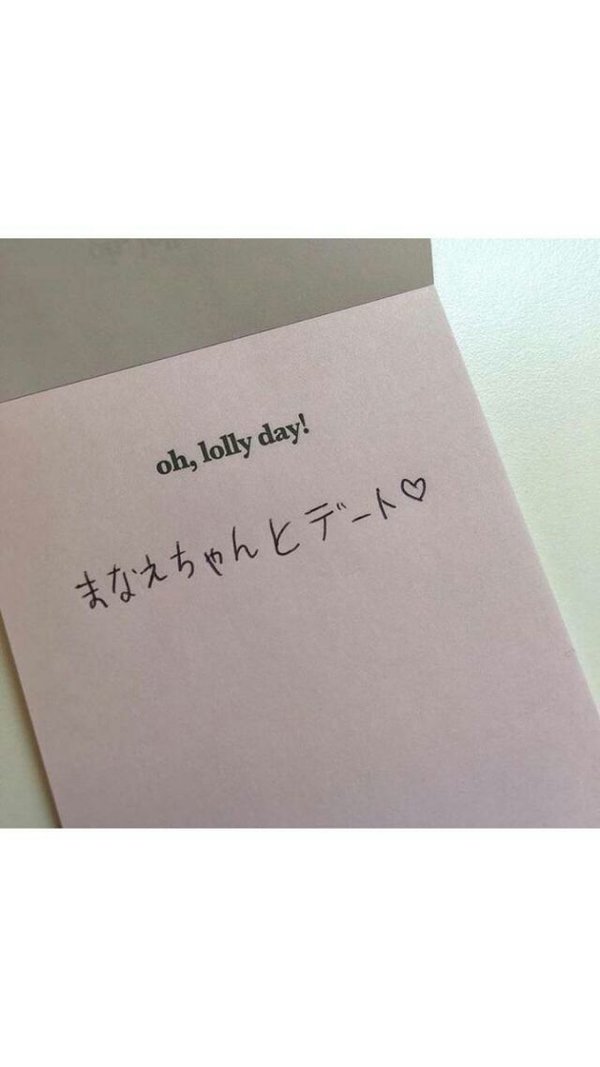 oh, lolly day!
まなえちゃんとデート♡